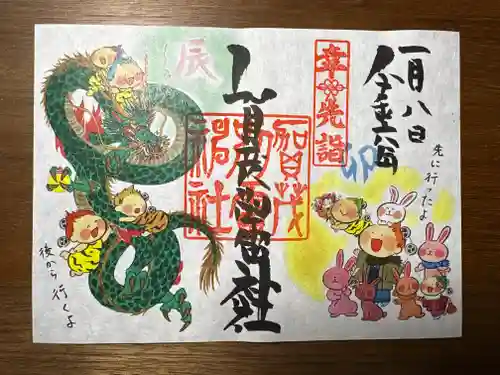 一月八日
令和六年
先に行ったよ
卯
幸先詣
賀茂
別雷
神社
辰
後から行くよ